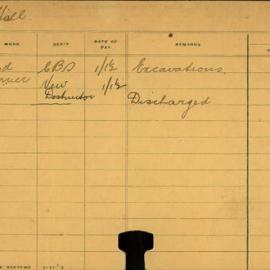 Hall
WORK DEPT RATE OF PAY REMARKS
EBS 1/1½ Excavations.
New 1/1½
Destructor Discharged